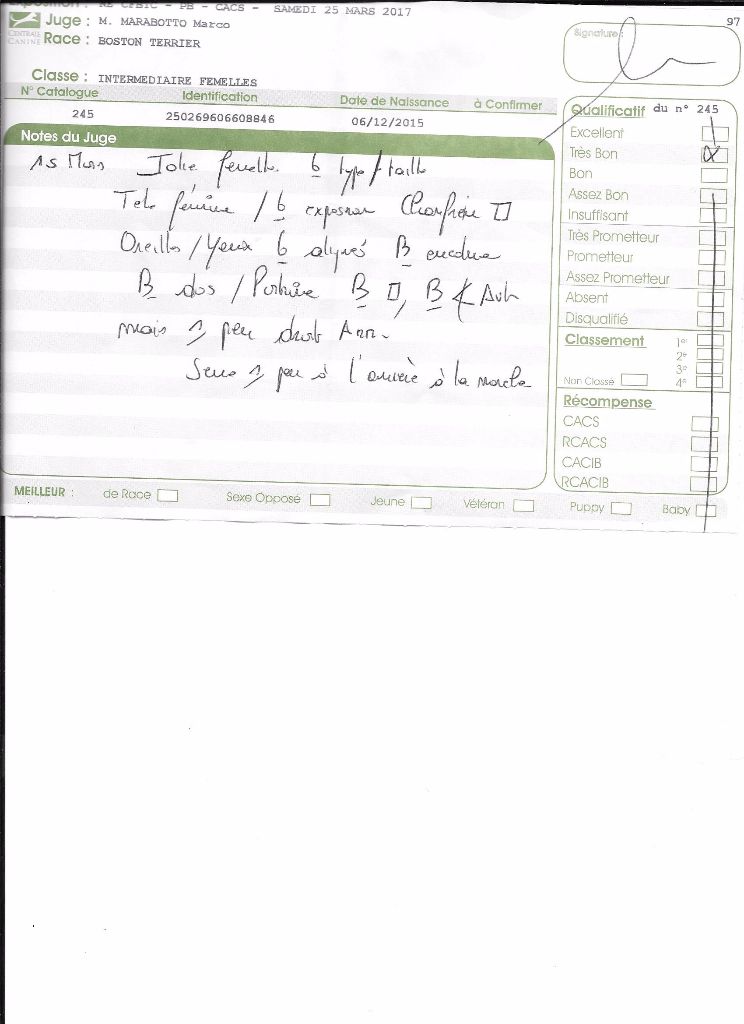 RE CFBTC - PB - CACS - SAMEDI 25 MARS 2017
97
Juge : M. MARABOTTO Marco
CENTRALE CANINE
Race : BOSTON TERRIER
Signature :
Classe : INTERMEDIAIRE FEMELLES
N° Catalogue Identification Date de Naissance à Confirmer
245 250269606608846 06/12/2015
Notes du Juge
15 Mois Jolie femelle. b type/taille
Tete féminine / b expression Chanfrein □
Oreilles/Yeux b B encolure
B dos / Poitrine B □, B
mais 1 peu droit Ann.
Serre 1 peu à l'arrière à la marche
Qualificatif du n° 245
Excellent
Très Bon X
Bon
Assez Bon
Insuffisant
Très Prometteur
Prometteur
Assez Prometteur
Absent
Disqualifié
Classement 1er
2e
3e
Non Classé 4e
Récompense
CACS
RCACS
CACIB
RCACIB
MEILLEUR : de Race Sexe Opposé Jeune Vétéran Puppy Baby